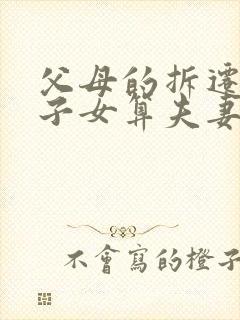 父母的拆迁
子女算夫妻
不會寫的橙子